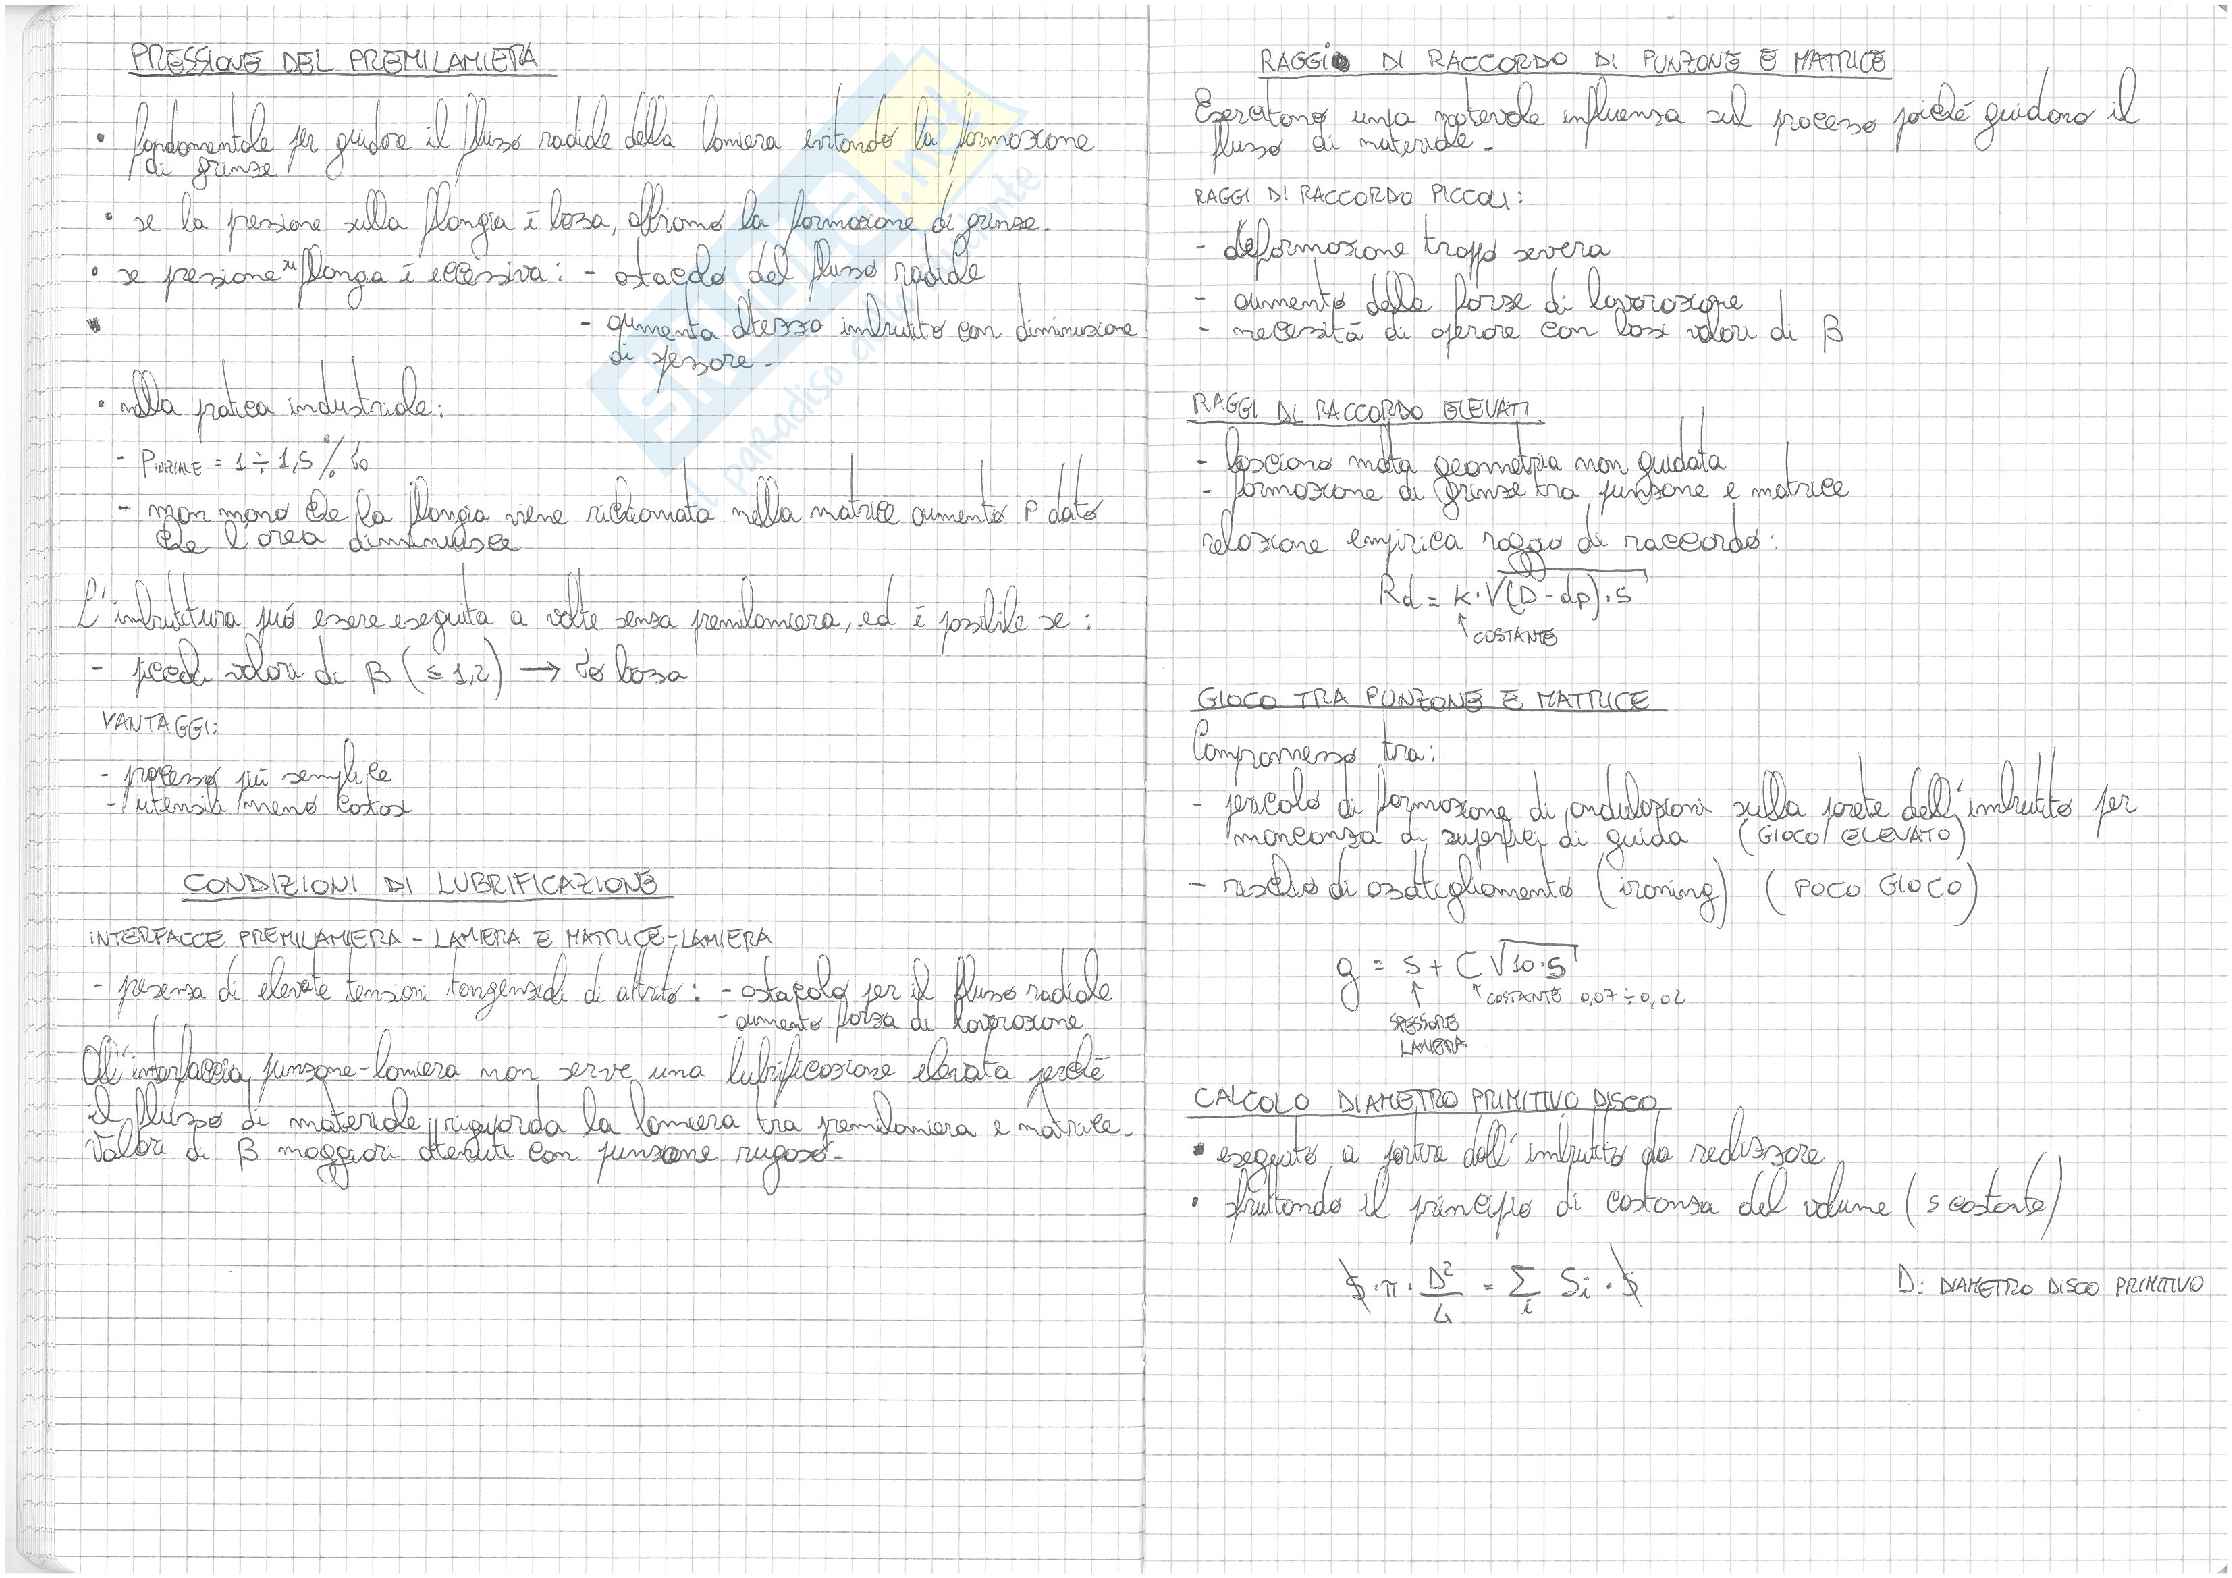 PRESSIONE DEL PREMILAMIERA
• fondamentale per guidare il flusso radiale della lamiera evitando la formazione
di grinze
• se la pressione sulla flangia è bassa, abbiamo la formazione di grinze.
• se pressione su flangia è eccessiva: - ostacolo del flusso radiale
- aumenta altezza imbutito con diminuzione
di spessore.
• nella pratica industriale:
- P INIZIALE = 1 ÷ 1,5 %
- man mano che la flangia viene richiamata nella matrice aumento P dato
che l'area diminuisce
L'imbutitura può essere eseguita a volte senza premilamiera, ed è possibile se:
- piccoli valori di β (≤ 1,2) → bassa
VANTAGGI:
- processo più semplice
- utensili meno costosi
CONDIZIONI DI LUBRIFICAZIONE
INTERFACCE PREMILAMIERA - LAMIERA E MATRICE-LAMIERA
- presenza di elevate tensioni tangenziali di attrito: - ostacolo per il flusso radiale
- aumento forza di lavorazione
All'interfaccia punzone-lamiera non serve una lubrificazione elevata perché
il flusso di materiale riguarda la lamiera tra premilamiera e matrice.
Valori di β maggiori ottenuti con punzone rugoso.
RAGGIO DI RACCORDO DI PUNZONE E MATRICE
Esercitano una notevole influenza sul processo poiché guidano il
flusso di materiale.
RAGGI DI RACCORDO PICCOLI:
- deformazione troppo severa
- aumento delle forze di lavorazione
- necessità di operare con bassi valori di β
RAGGI DI RACCORDO ELEVATI
- lasciano molta geometria non guidata
- formazione di grinze tra punzone e matrice
relazione empirica raggio di raccordo:
Rd = K·√(D-dp)·s
↑ COSTANTE
GIOCO TRA PUNZONE E MATRICE
Compromesso tra:
- pericolo di formazione di ondulazioni sulla parete dell'imbutito per
mancanza di superfici di guida (GIOCO ELEVATO)
- rischio di assottigliamento (ironing) (POCO GIOCO)
g = s + C√10·s
↑ ↑ COSTANTE 0,07 ÷ 0,02
SPESSORE
LAMIERA
CALCOLO DIAMETRO PRIMITIVO DISCO
• eseguito a partire dall'imbutito da realizzare
• sfruttando il principio di costanza del volume (s costante)
s·π·D²/4 = Σi Si·s D: DIAMETRO DISCO PRIMITIVO